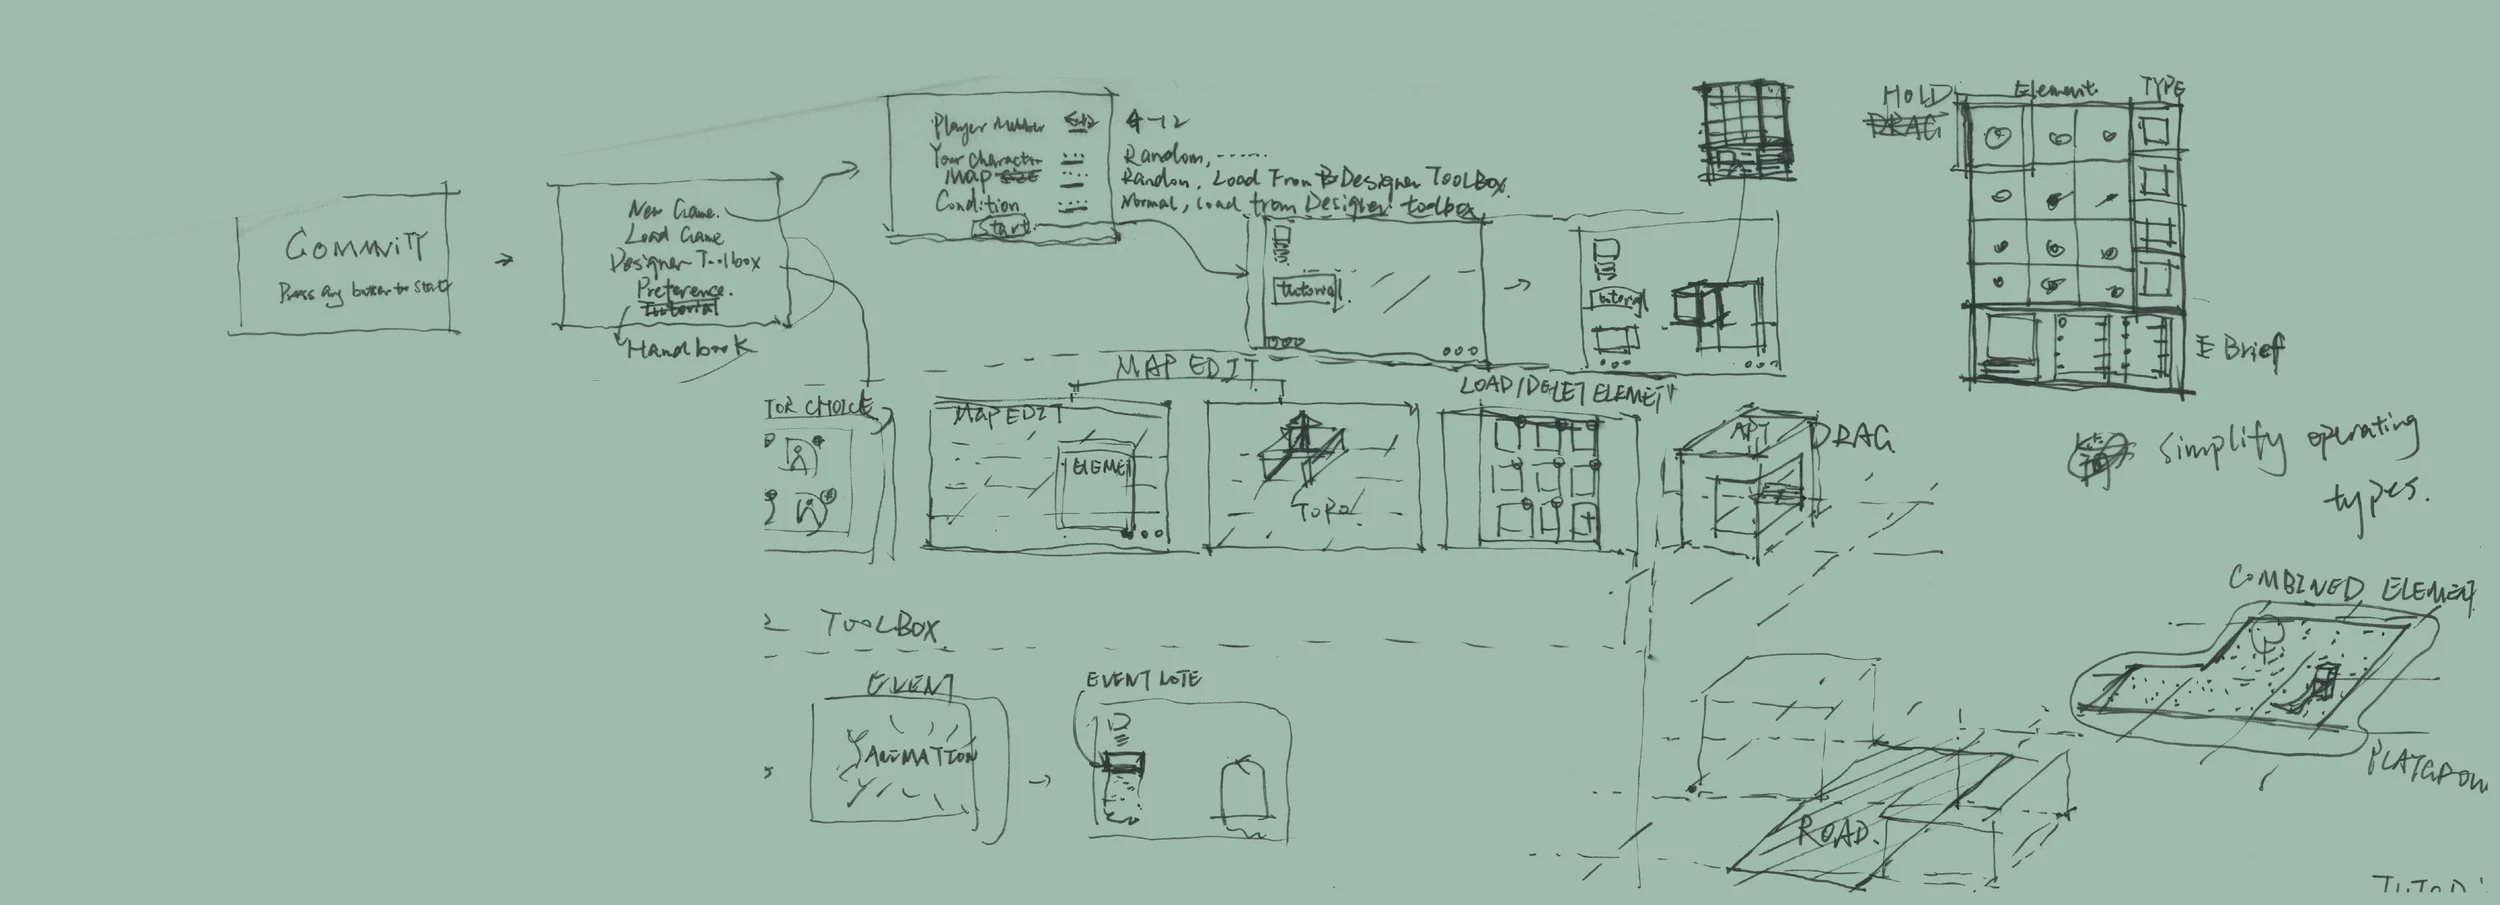 COMMNITY
Press any button to Start
New Game.
Load Game
Designer Toolbox
Preference.
Tutorial
Handbook
Player Number
4-12
Your Character
Random, ......
Map size
Random. Load From Designer TOOLBOX.
Condition
Normal, Load from Designer toolbox
Start
tutorial
tutorial
HOLD
DRAG
Element
TYPE
Brief
simplify operating
types.
MAP EDIT
TOR CHOICE
MAP EDIT
ELEME
TOPO
LOAD/DELET ELEMENT
APT
DRAG
TOOLBOX
EVENT
ANIMATION
EVENT NOTE
ROAD.
COMBINED ELEMENT
PLAYGROUN
TUTOR